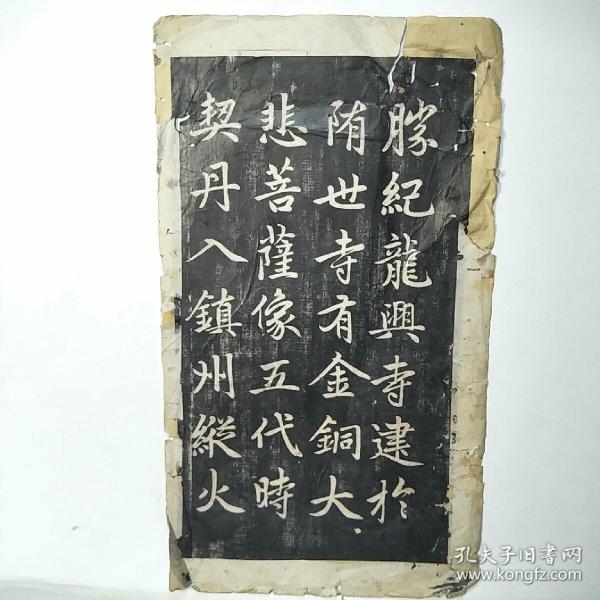 勝紀龍興寺建於
隋世寺有金銅大
悲菩薩像五代時
契丹入鎮州縱火
孔夫子旧書网
www.kongfz.com